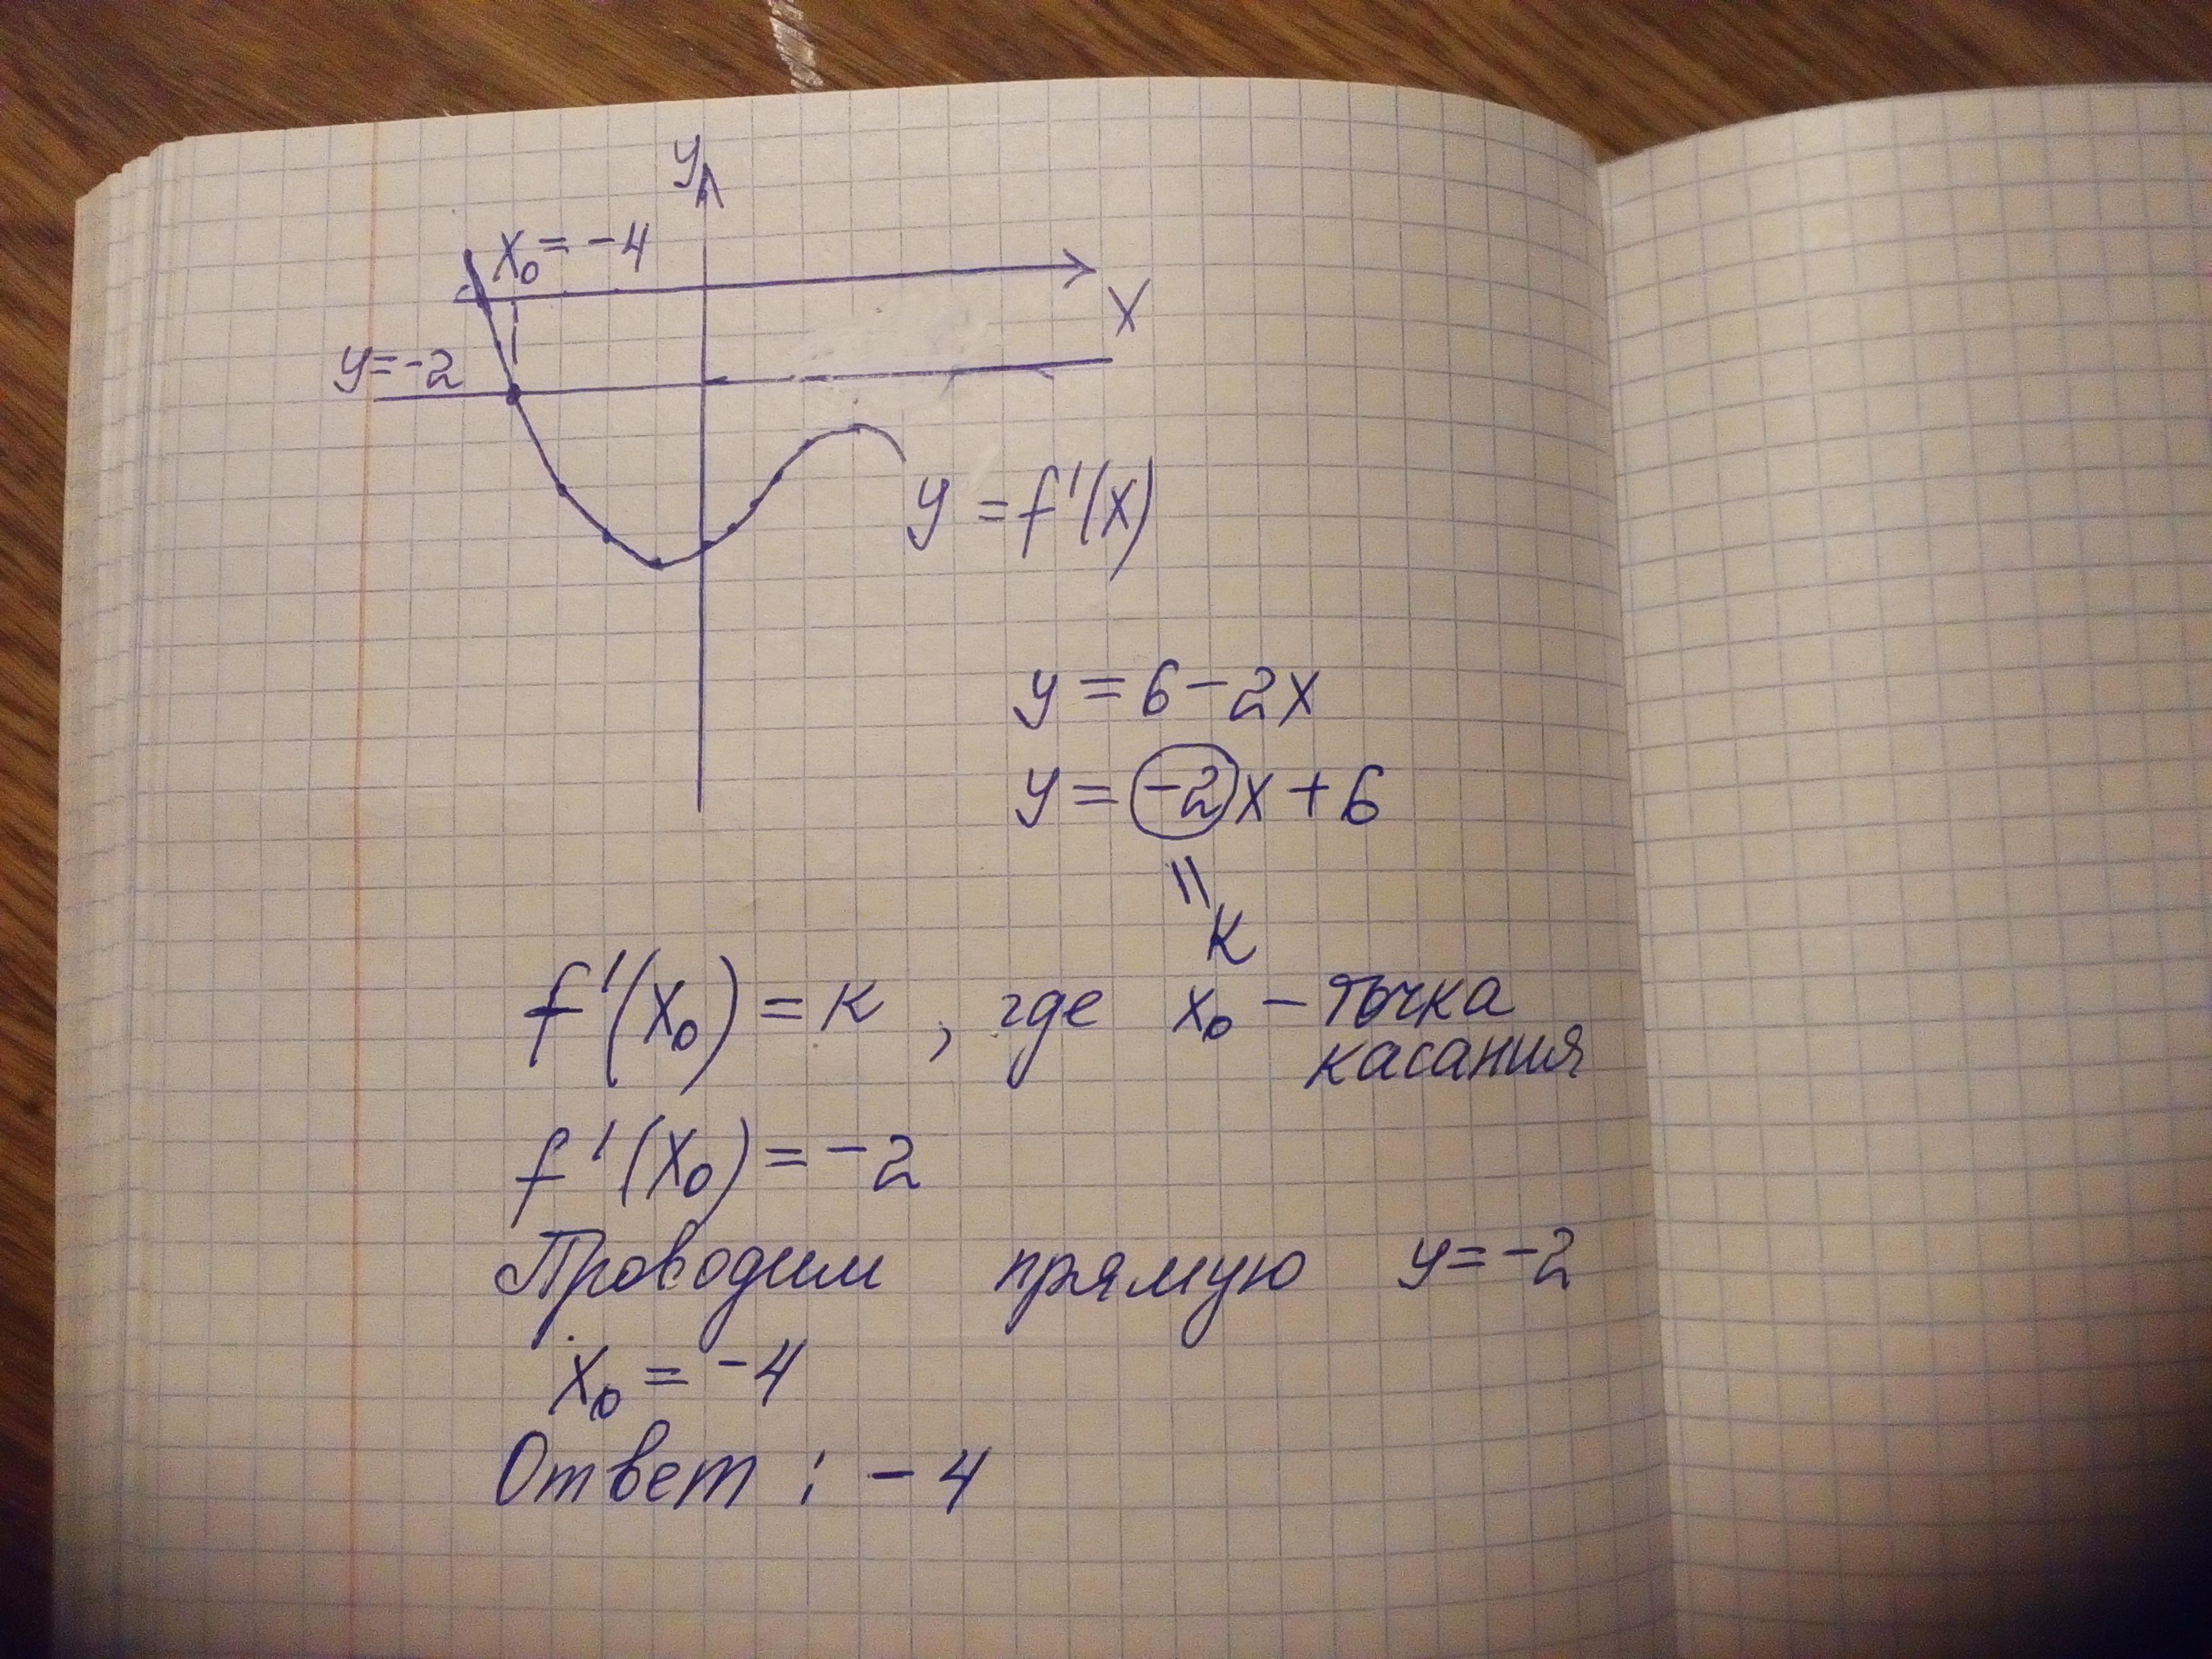 y
x₀ = -4
x
y=-2
y = f'(x)
y = 6 - 2x
y = -2x + 6
=
k
f'(x₀) = k , где x₀ - точка
касания
f'(x₀) = -2
Проводим прямую y = -2
x₀ = -4
Ответ : - 4